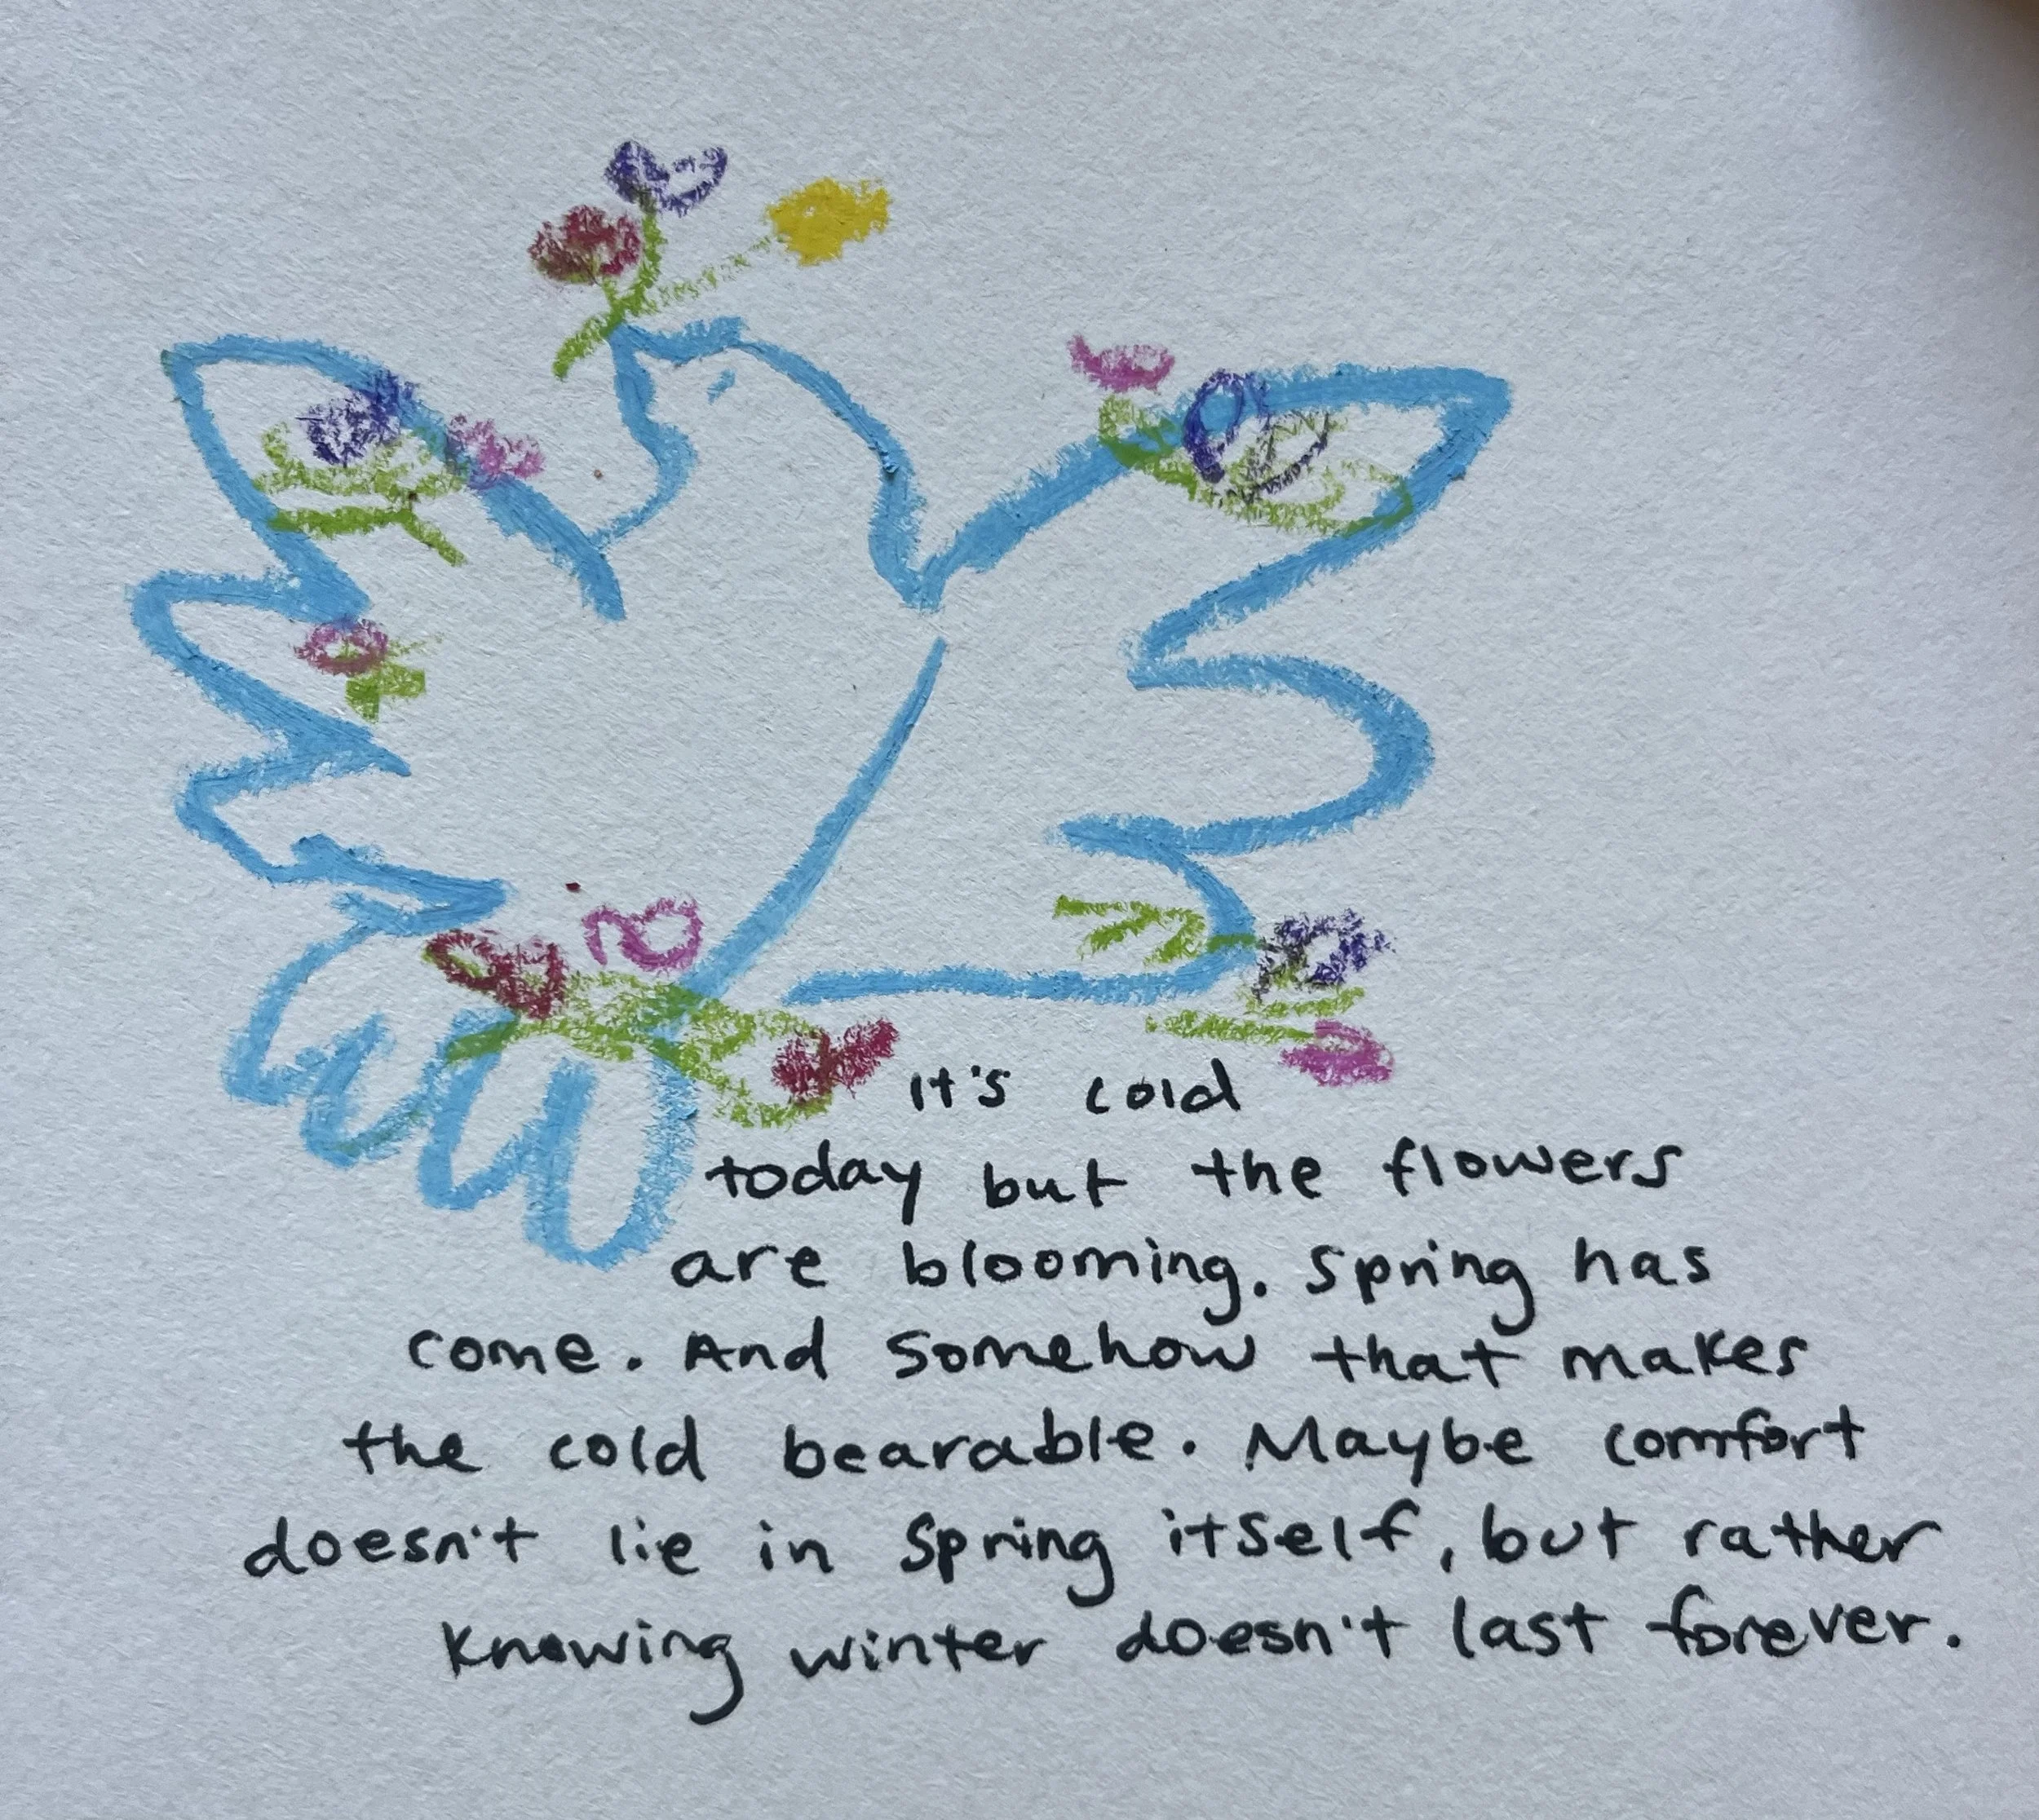 It's cold
today but the flowers
are blooming. Spring has
come. And somehow that makes
the cold bearable. Maybe comfort
doesn't lie in Spring itself, but rather
knowing winter doesn't last forever.